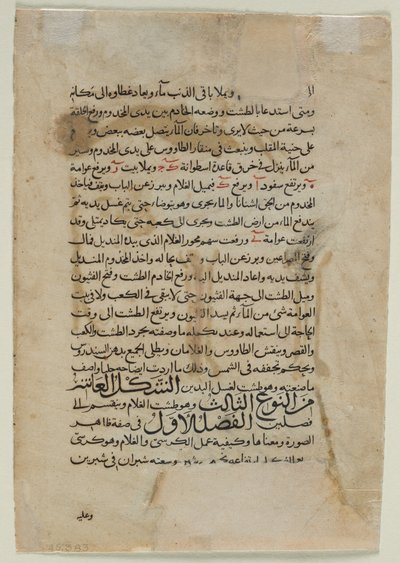 ويملا باقى الذنب ماء ويعاد غطاوه الى مكانه
ومتى استدعا بالطشت ووضعه الخادم بين يدى المخدوم ورفع
بسرعة من حيث لا يرى وتاخر فان الماء يتصل بعضه ببعض
على حنية المقلب وينبعث فى منقار الطاووس على يدى المخدوم وسير
من الماء ينزل فى خرق قاعدة اسطوانة ويملا بيت ويرفع عوامة
ويرتفع سفود ويرفع فيميل الغلام ويبرز عن الباب ويقف فياخذ
المخدوم من الحق اشنانا والماء يجرى وهو يتوضا حتى يتم غسل يديه
يندفع الماء من ارض الطشت ويجرى الى كعبه حتى يكاد يمتلى وقد
ارتفعت عوامة ورفعت سهم محور الغلام الذى بيده المنديل فمال
وفتح المصراعين وبرز عن الباب بحاله واخذ المخدوم المنديل
ونشف يديه واعاد المنديل اليه ورفع الخادم الطشت وفتح الفثيون
وميل الطشت الى جهة الفثيون حتى لا يبقى فى الكعب ولا فى بيت
العوامة شى من الماء ثم يسد الفثيون ويرتفع الطشت الى وقت
الحاجة الى استعماله وعند تكملة ما وصفته يجرد الطشت والكعب
والقصر وينقش الطاووس والغلامان ويطلى الجميع بدهن السندروس
ويحكم تجفيفه فى الشمس وذلك ما اردت ايضاحه
ما صنعته وهو طشت لغسل اليدين الشكل العاشر
من النوع الثالث وهو طشت الغلام وينقسم الى
فصلين الفصل الاول فى صفة ظاهر
الصورة ومعناها وكيفية عمل الكرسى والغلام وهو كرسى
وسعته شبران فى شبرين
وعليه